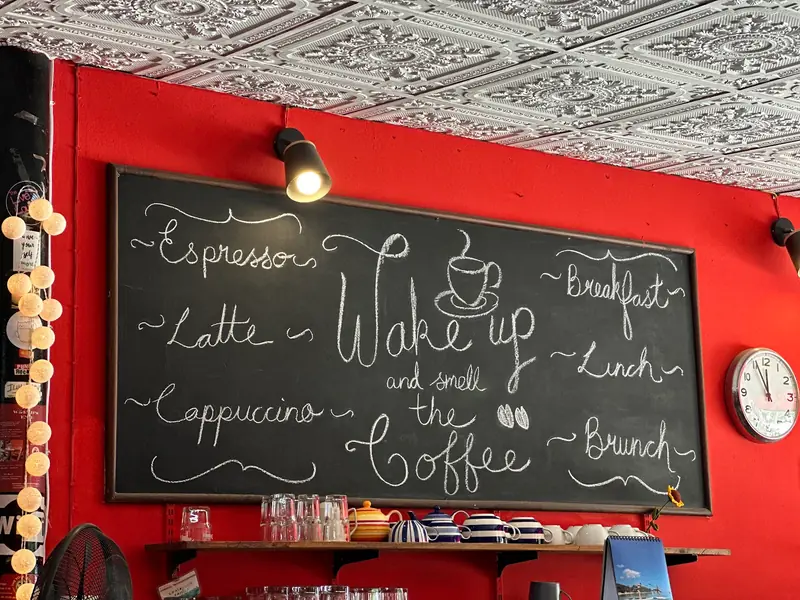 Espresso
Latte
Cappuccino
Wake up
and smell
the
Coffee
Breakfast
Lunch
Brunch